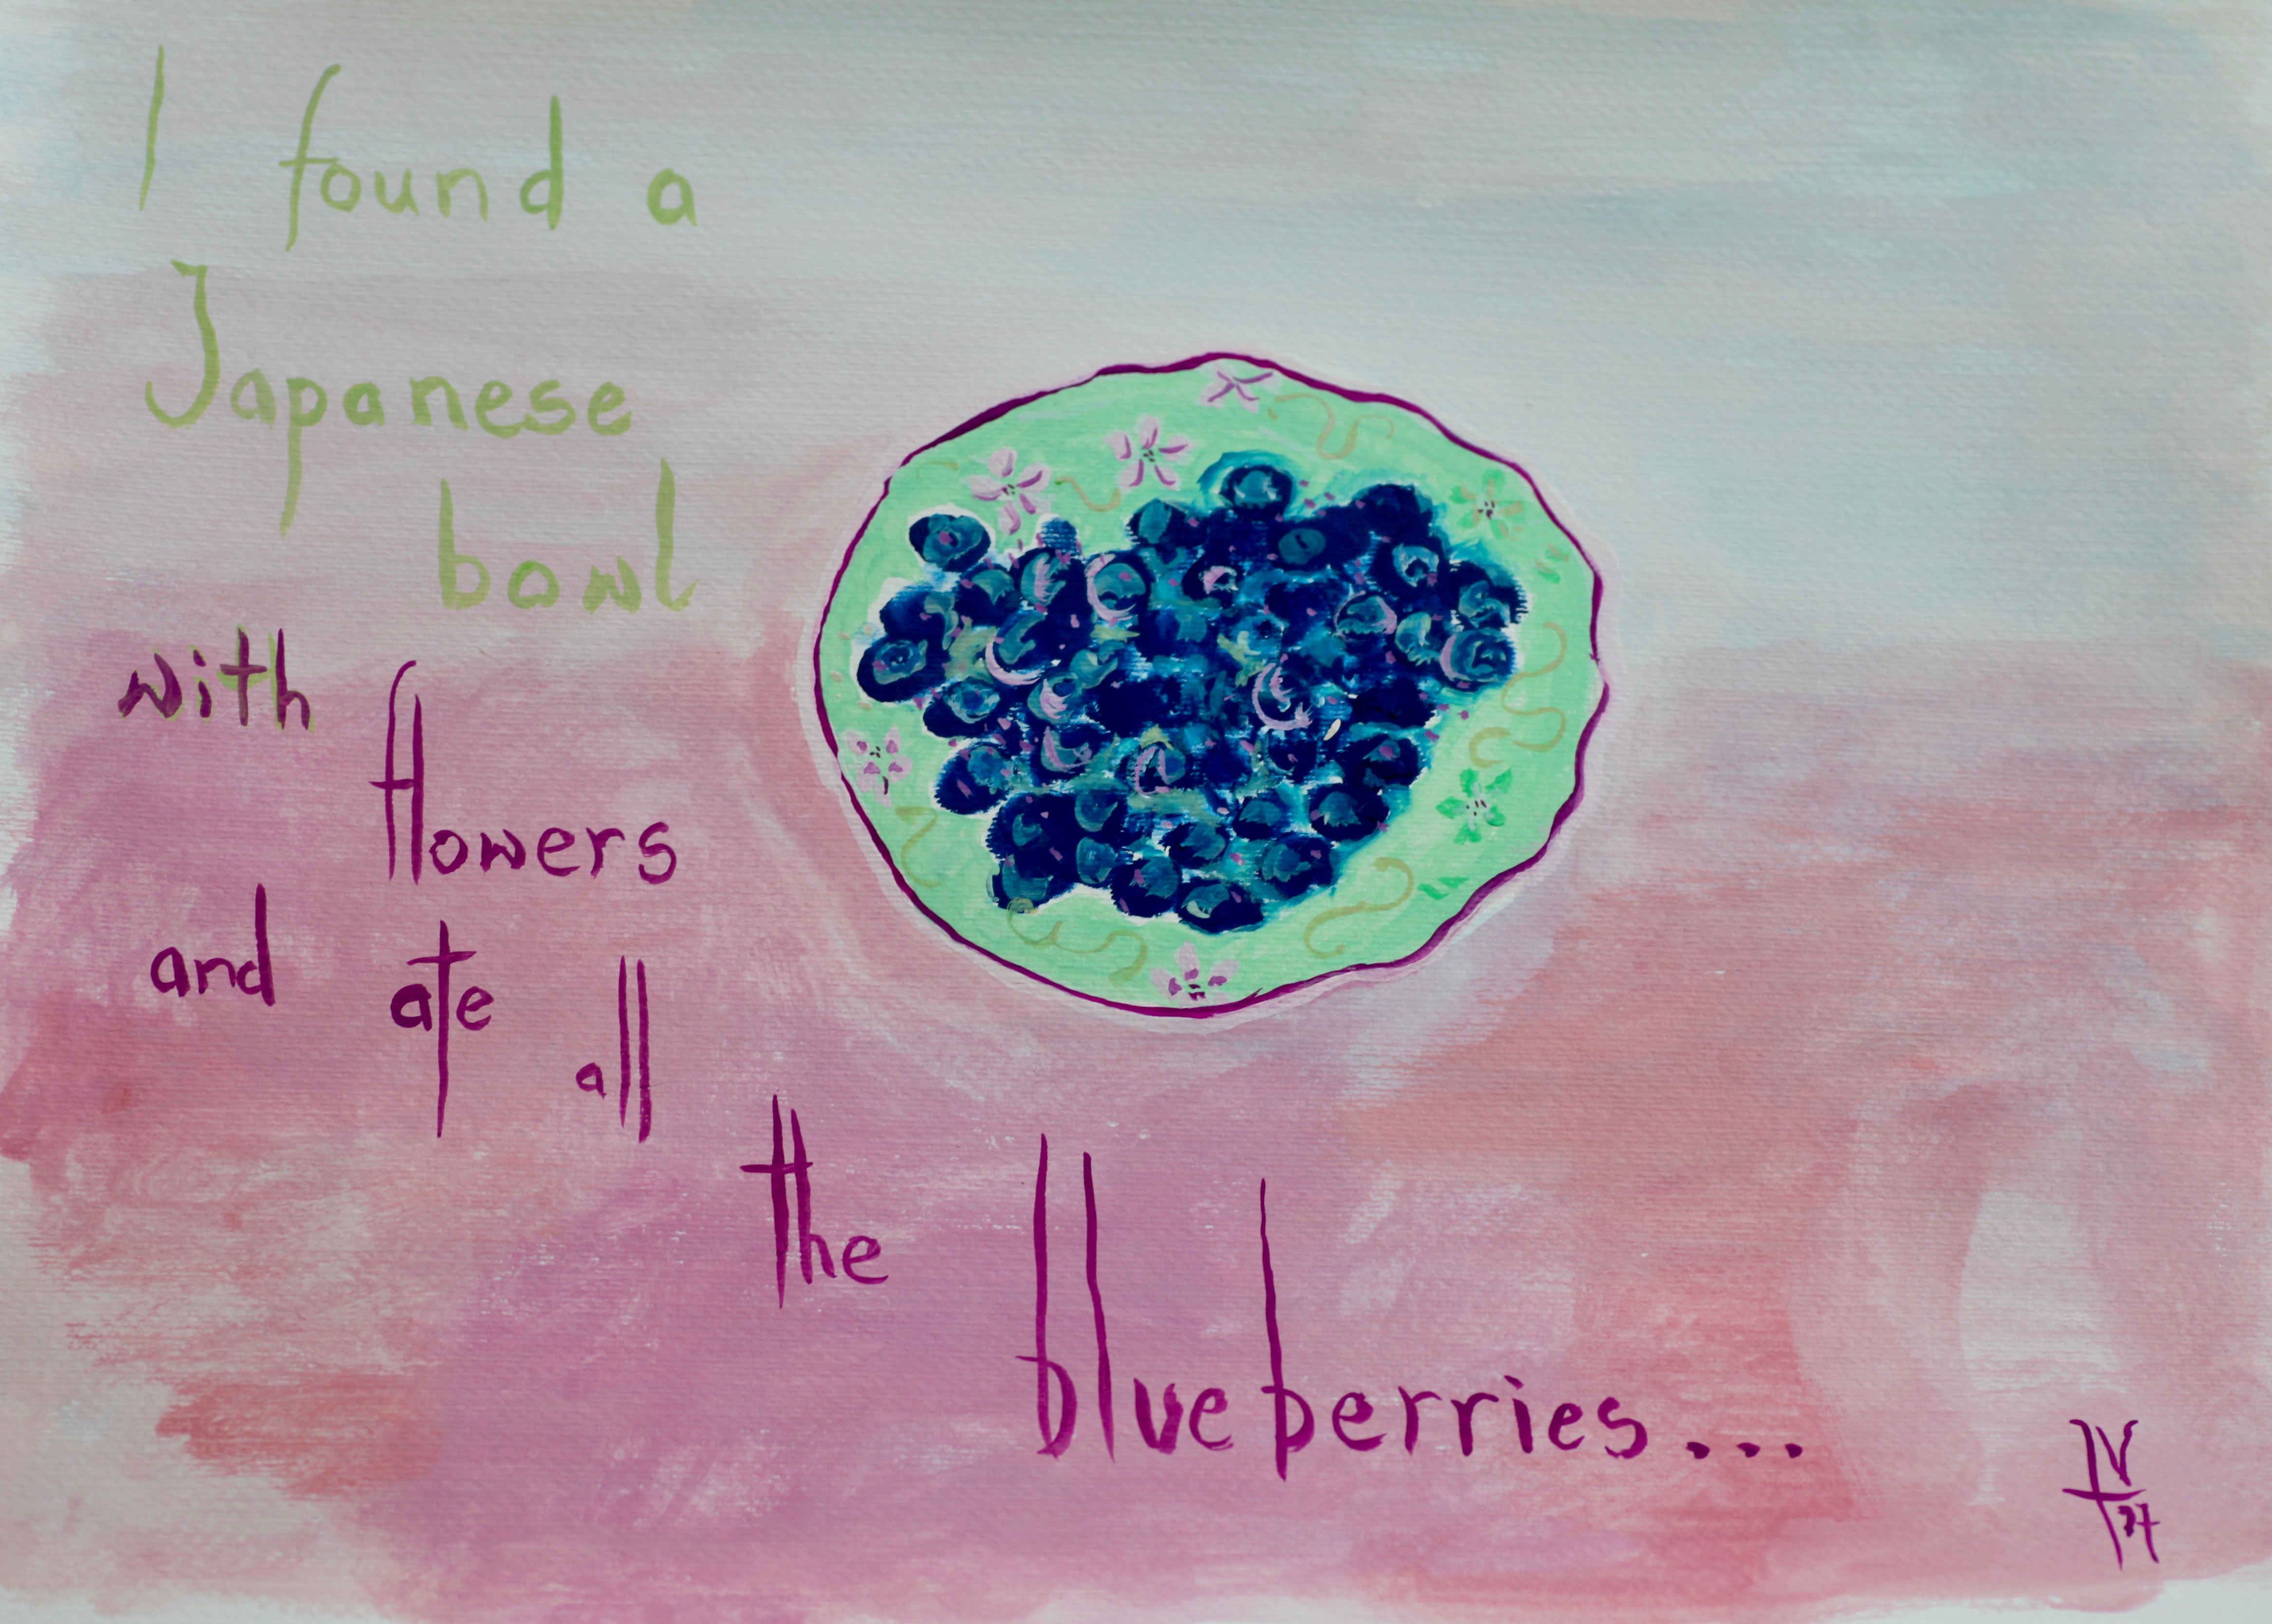 I found a
Japanese
bowl
with flowers
and ate all
the blueberries...